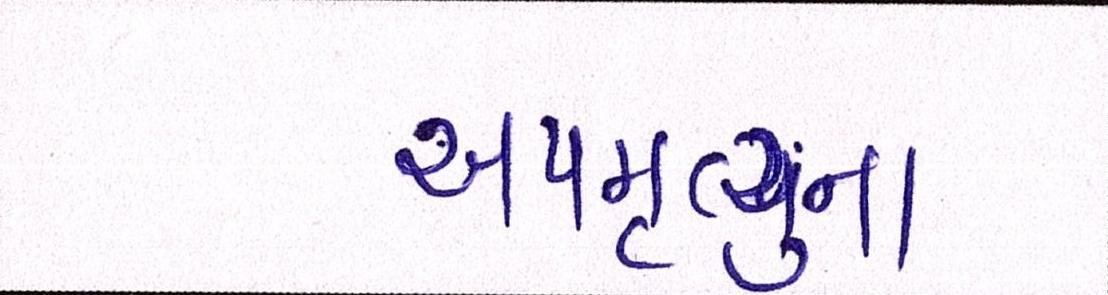 અપમૃત્યુના